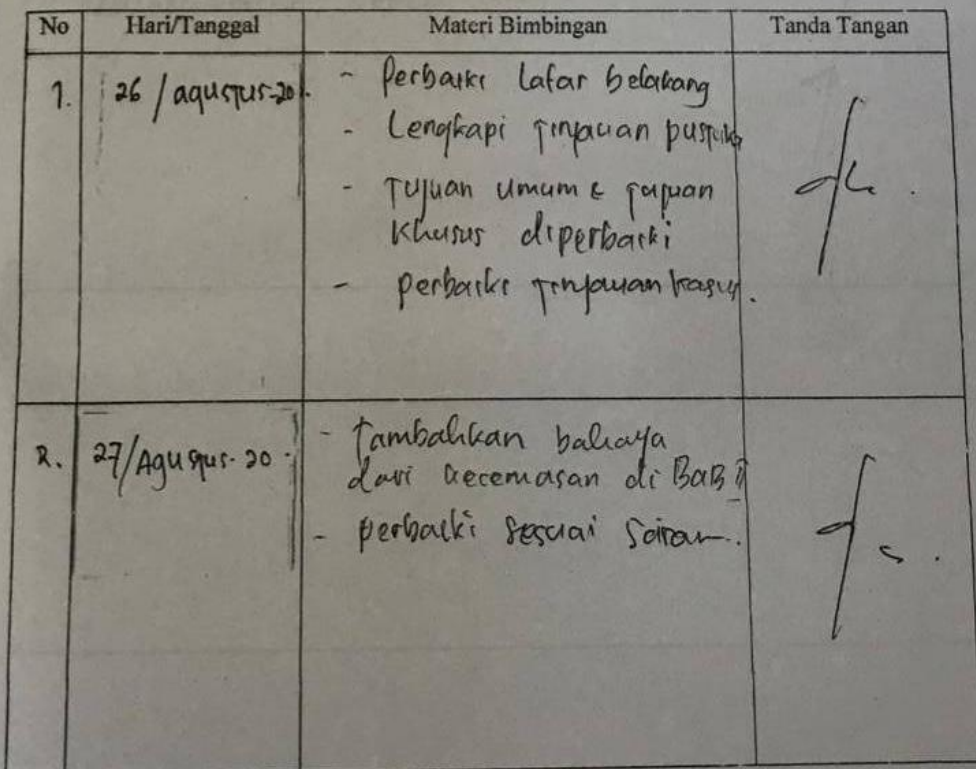 No Hari/Tanggal Materi Bimbingan Tanda Tangan
1. 26 / agustus-20 - Perbaiki latar belakang
- Lengkapi Tinjauan pustaka
- Tujuan umum & tujuan
khusus diperbaiki
- perbaiki Tinjauan kasus.
2. 27/Agustus-20 - Tambahkan bahaya
dari kecemasan di BAB II
- perbaiki sesuai saran.